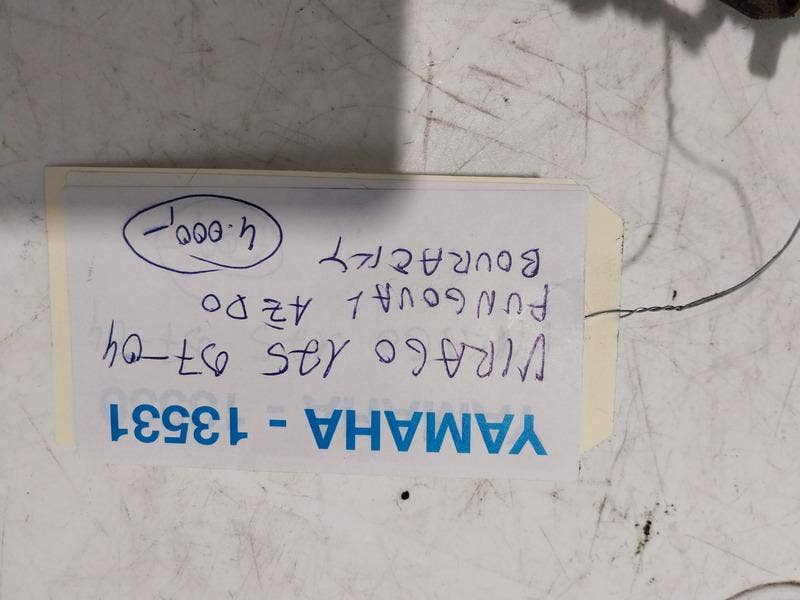 YAMAHA - 13531
VIRAGO 125 97-04
FUNGOVAL AŽ DO
BOURAČKY
4.000,-